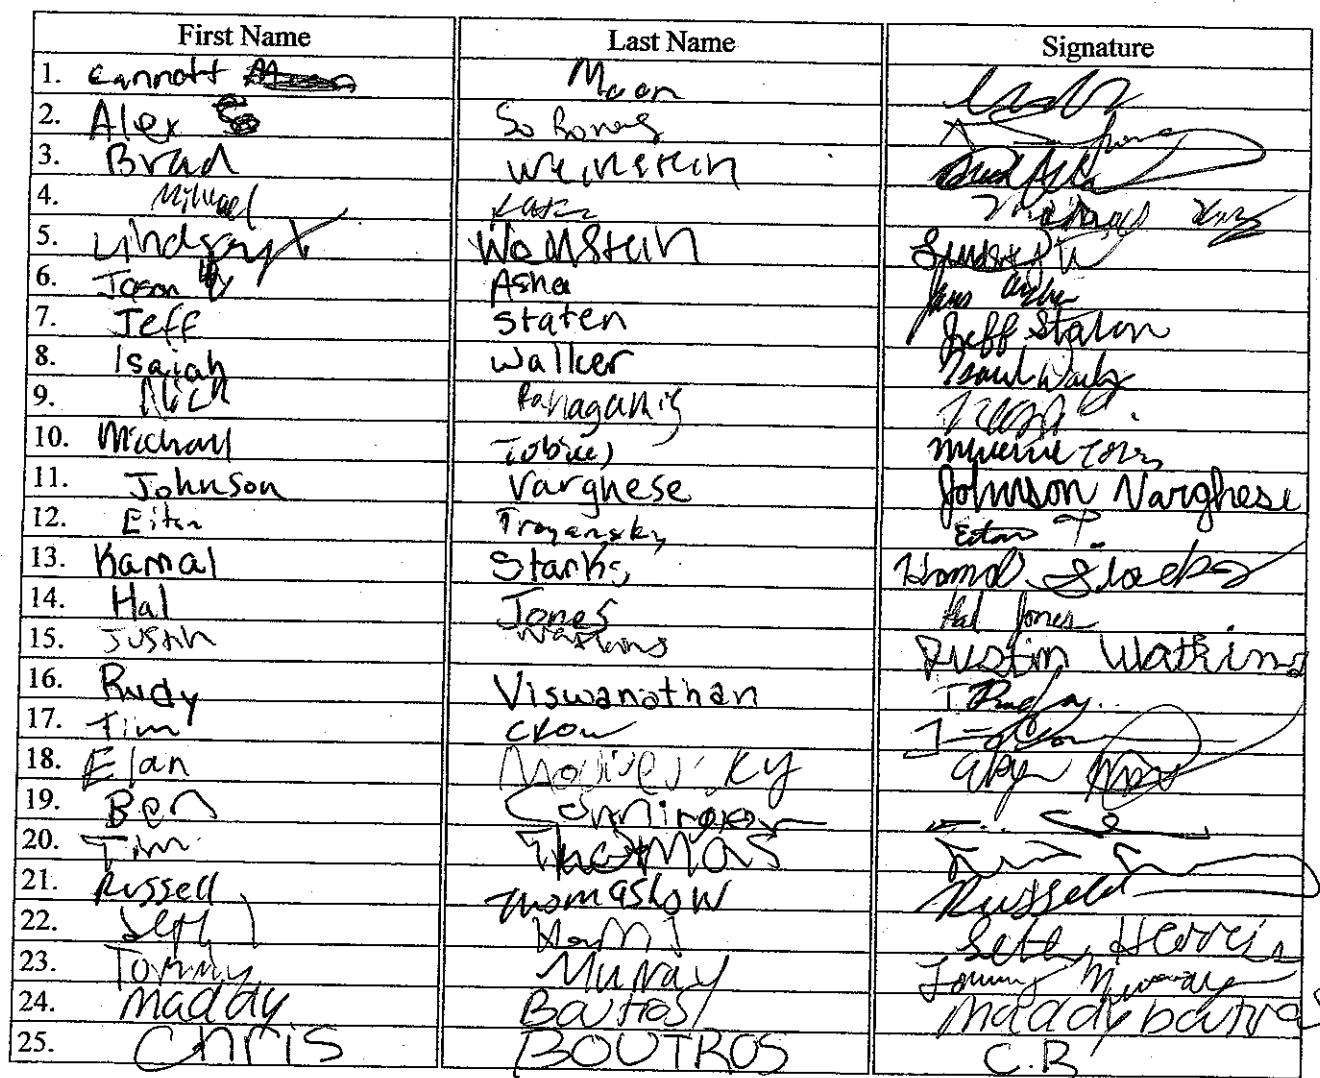 First Name Last Name Signature
1. Moon
2. Alex
3. Brad Weinstein
4. Michael Katz
5. Lindsay
6. Jason Asher
7. Jeff Staten Jeff Staten
8. Isaiah Walker Isaiah Walker
9. Nick
10. Michael Tobias
11. Johnson Varghese Johnson Varghese
12. Eitan Troyansky Eitan T.
13. Kamal Starks Kamal Starks
14. Hal Jones Hal Jones
15. Justin Watkins Justin Watkins
16. Rudy Viswanathan
17. Tim Crow
18. Elan
19. Ben
20. Tim Thomas
21. Russell Thomashow Russell
22. Seth Harris Seth Harris
23. Tommy Murray Tommy Murray
24. Maddy Boutros Maddy boutros
25. Chris BOUTROS C.B